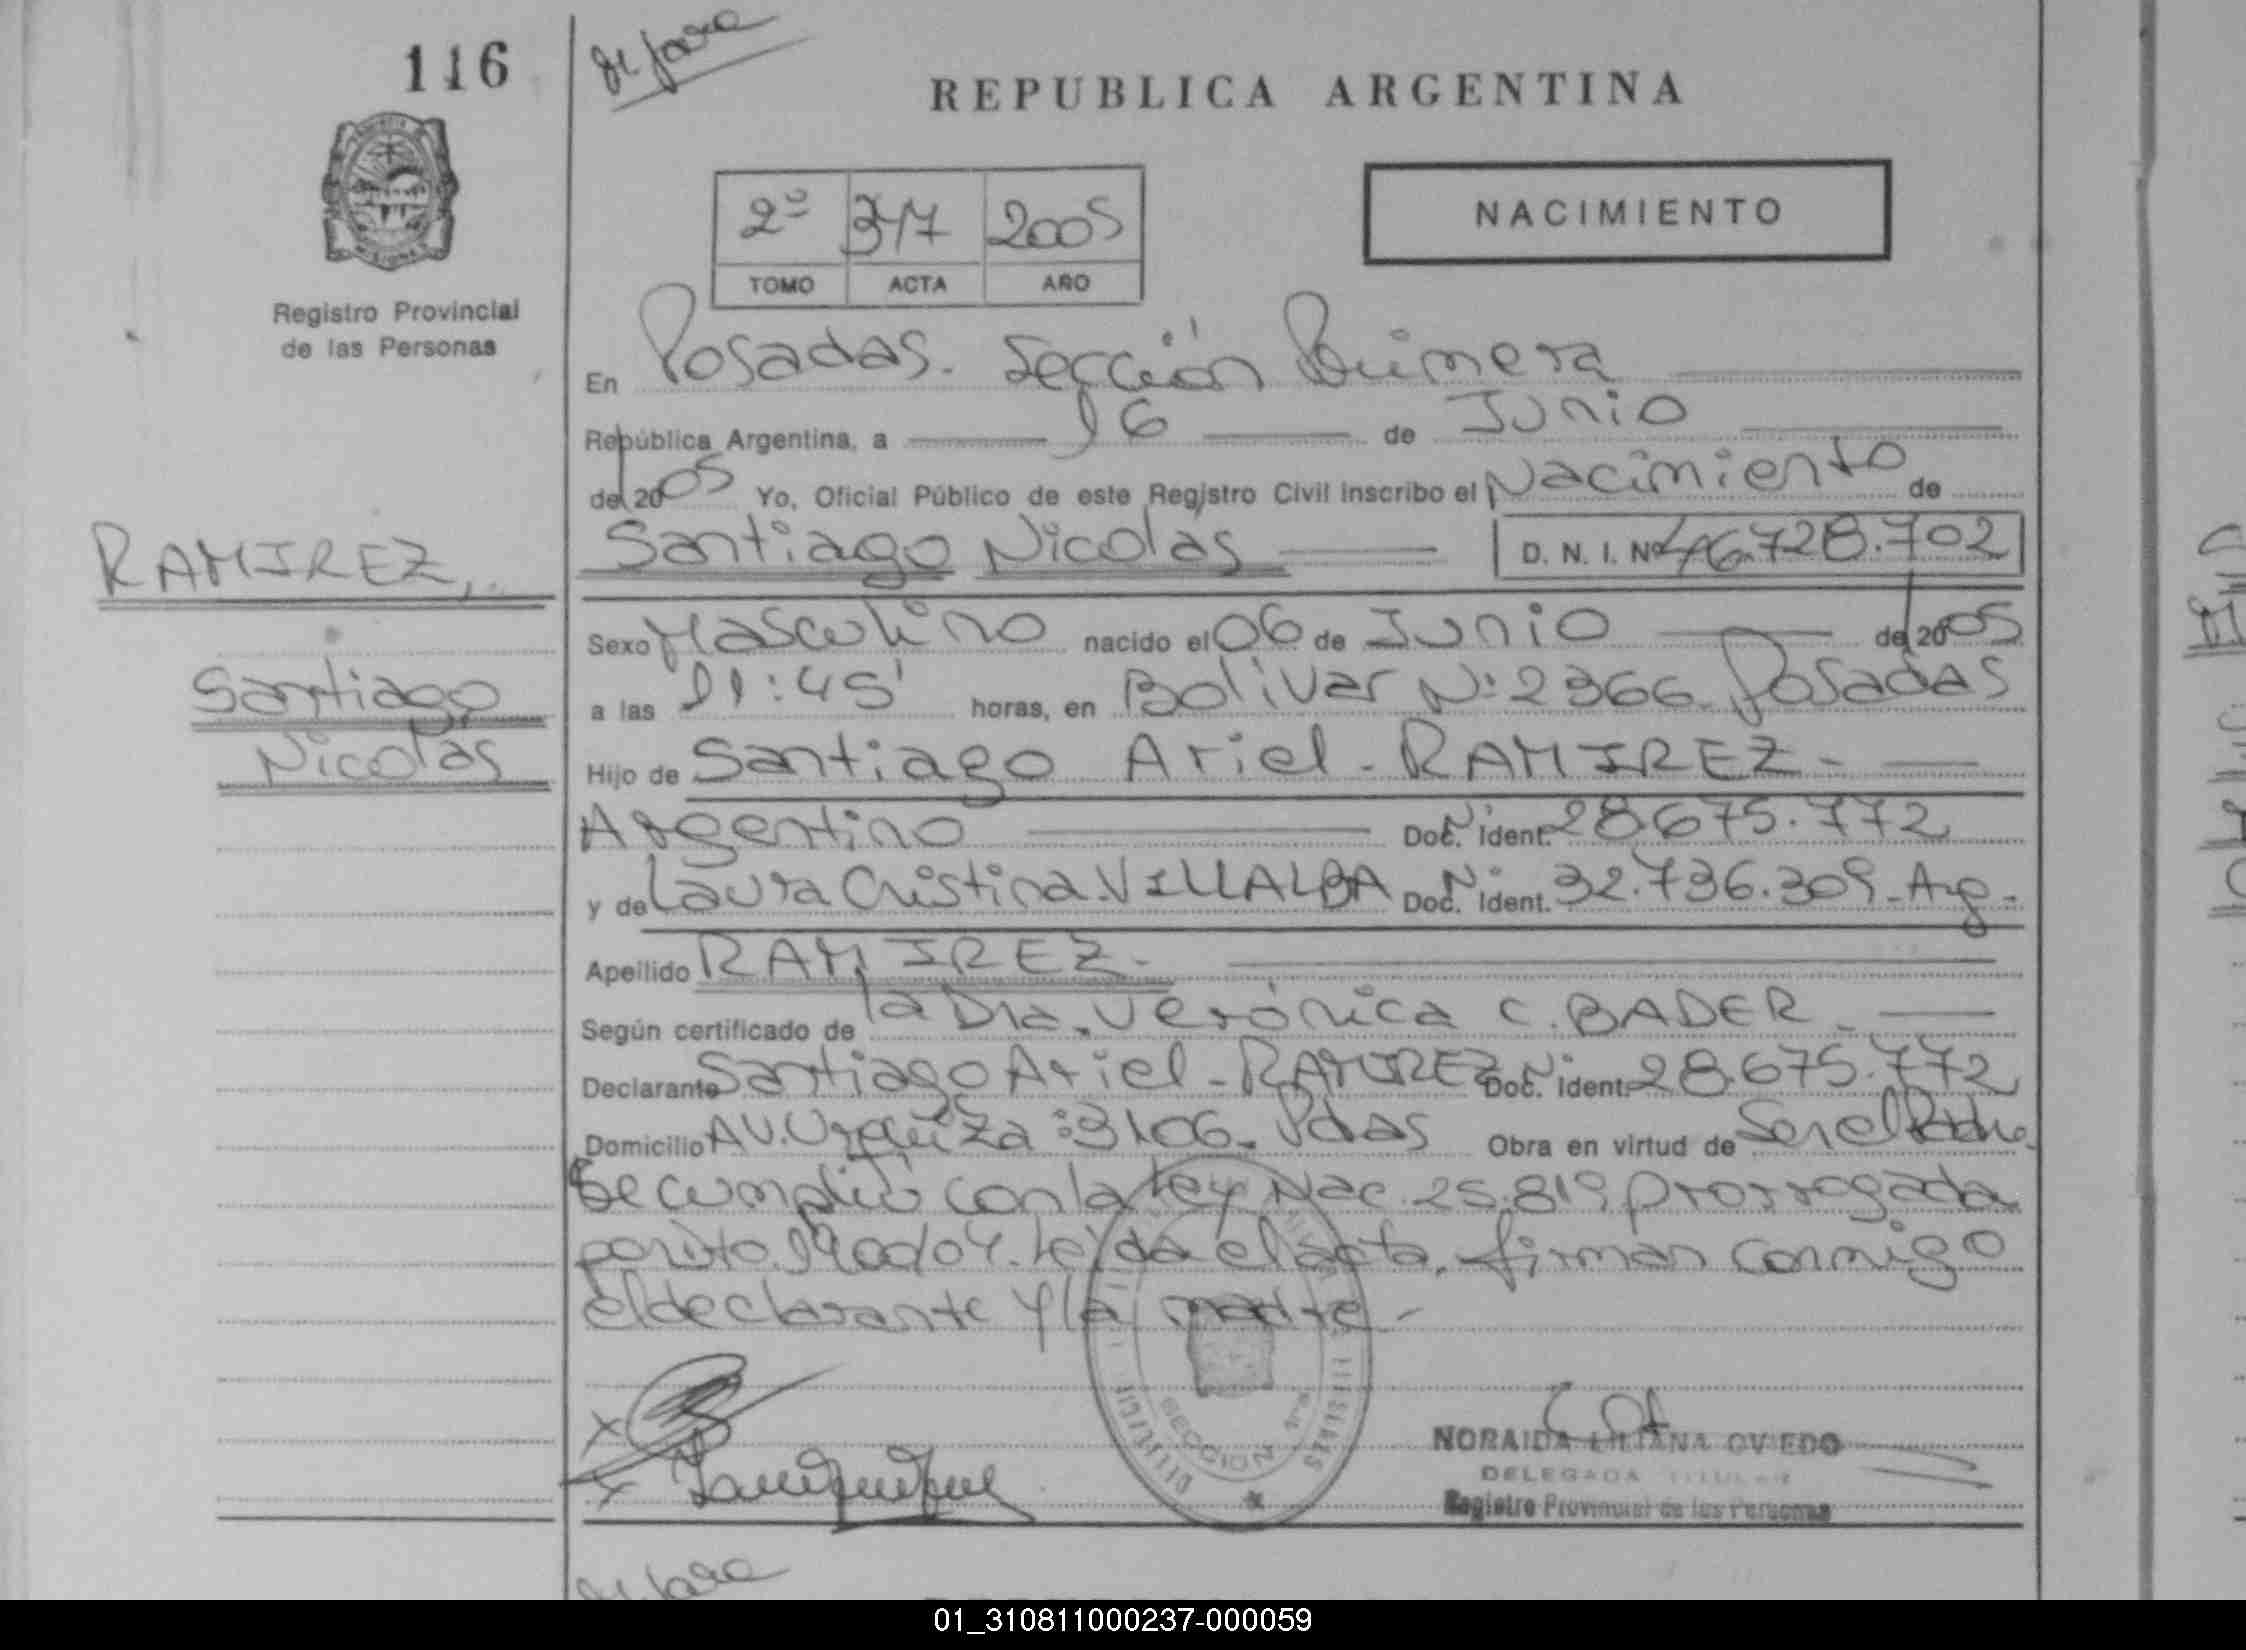 116
REPUBLICA ARGENTINA
2º 347 2005
TOMO ACTA AÑO
NACIMIENTO
Registro Provincial
de las Personas
En Posadas. Sección Primera
República Argentina, a 16 de Junio
del 2005 Yo, Oficial Público de este Registro Civil inscribo el Nacimiento de
RAMIREZ,
Santiago Nicolás D. N. I. Nº 46.728.702
Sexo Masculino nacido el 06 de Junio del 2005
Santiago
Nicolás
a las 11:45' horas, en Bolivar Nº: 2366. Posadas
Hijo de Santiago Ariel - RAMIREZ -
Argentino Doc. Nº Ident. 28.675.772
y de Laura Cristina. VILLALBA Doc. Nº Ident. 32.736.309 - Arg -
Apellido RAMIREZ -
Según certificado de la Dra. Verónica C. BADER.
Declarante Santiago Ariel - RAMIREZ Doc. Nº Ident. 28.675.772
Domicilio AV. Urquiza :3106. Pdas Obra en virtud de Ser el Padre.
Se cumplió con la Ley Nac. 25.819 prorrogada
por Dto. 190d/04. Leída el acta, firman conmigo
el declarante y la madre -
SECCION 1ra
NORAIDA LILIANA OVIEDO
DELEGADA TITULAR
Registro Provincial de las Personas
01_310811000237-000059